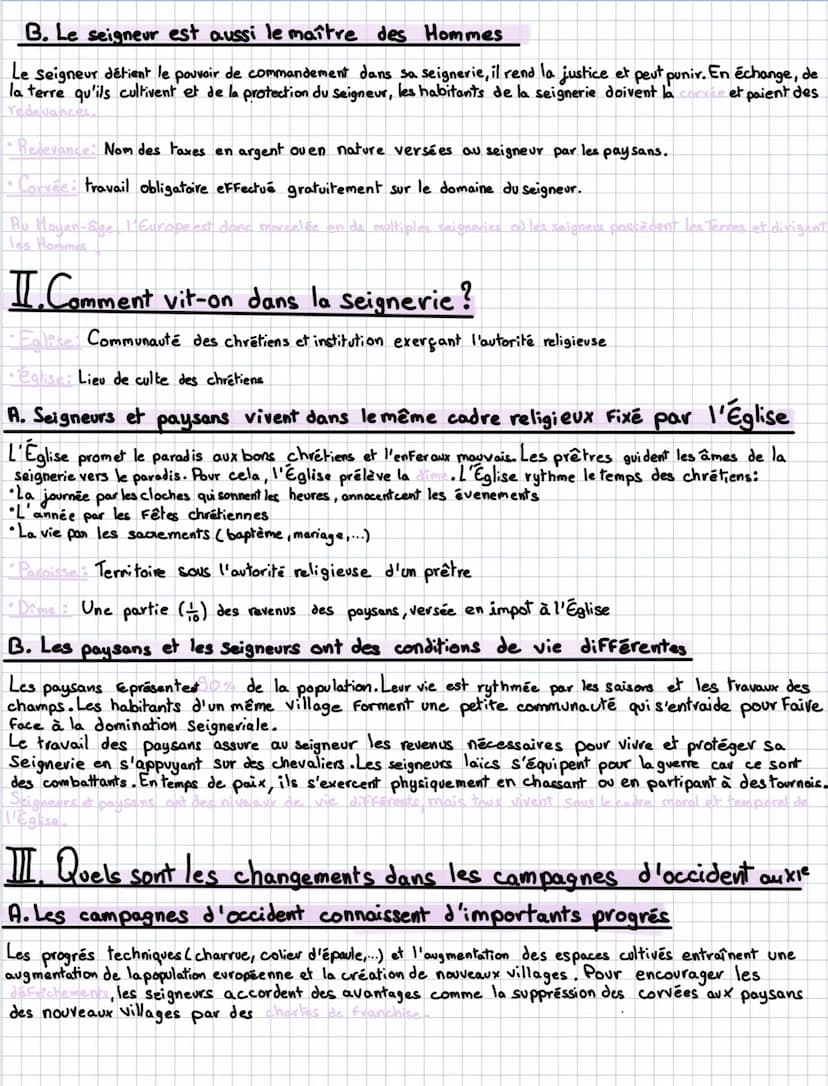 B. Le seigneur est aussi le maître des Hommes
Le seigneur détient le pouvoir de commandement dans sa seigneurie, il rend la justice et peut punir. En échange, de
la terre qu'ils cultivent et de la protection du seigneur, les habitants de la seignerie doivent la corvée et paient des
redevances.
• Redevance: Nom des taxes en argent ou en nature versées au seigneur par les paysans.
• Corvée: travail obligatoire effectué gratuitement sur le domaine du seigneur.
Au Moyen-âge, l'Europe est donc morcelée en de multiples seigneries où les seigneurs possèdent les Terres et dirigent
les Hommes.
II. Comment vit-on dans la seignerie?
• Église: Communauté des chrétiens et institution exerçant l'autorité religieuse
• église: Lieu de culte des chrétiens
A. Seigneurs et paysans vivent dans le même cadre religieux fixé par l'Église
L'Église promet le paradis aux bons chrétiens et l'enfer aux mauvais. Les prêtres guident les âmes de la
seignerie vers le paradis. Pour cela, l'Église prélève la dîme. L'Église rythme le temps des chrétiens:
• La journée par les cloches qui sonnent les heures, annocentcent les évenements
• L'année par les Fêtes chrétiennes
• La vie par les sacrements (baptème, mariage,...)
• Paroisse: Territoire sous l'autorité religieuse d'un prêtre
• Dîme: Une partie (1/10) des revenus des paysans, versée en impot à l'Église
B. Les paysans et les seigneurs ont des conditions de vie différentes
Les paysans eprésentes 90% de la population. Leur vie est rythmée par les saisons et les travaux des
champs. Les habitants d'un même village forment une petite communauté qui s'entraide pour faire
face à la domination seigneriale.
Le travail des paysans assure au seigneur les revenus nécessaires pour vivre et protéger sa
Seignerie en s'appuyant sur des chevaliers. Les seigneurs laïcs s'équipent pour la guerre car ce sont
des combattants. En temps de paix, ils s'exercent physiquement en chassant ou en partipant à des tournois.
Seigneurs et paysans ont des niveaux de vie différents, mais tous vivent sous le cadre moral et temporel de
l'Église.
III. Quels sont les changements dans les campagnes d'occident au XIe
A. Les campagnes d'occident connaissent d'importants progrés
Les progrés techniques (charrue, colier d'épaule,...) et l'augmentation des espaces cultivés entraînent une
augmentation de la population européenne et la création de nouveaux villages. Pour encourager les
défrichements, les seigneurs accordent des avantages comme la suppréssion des corvées aux paysans
des nouveaux villages par des chartes de franchise.